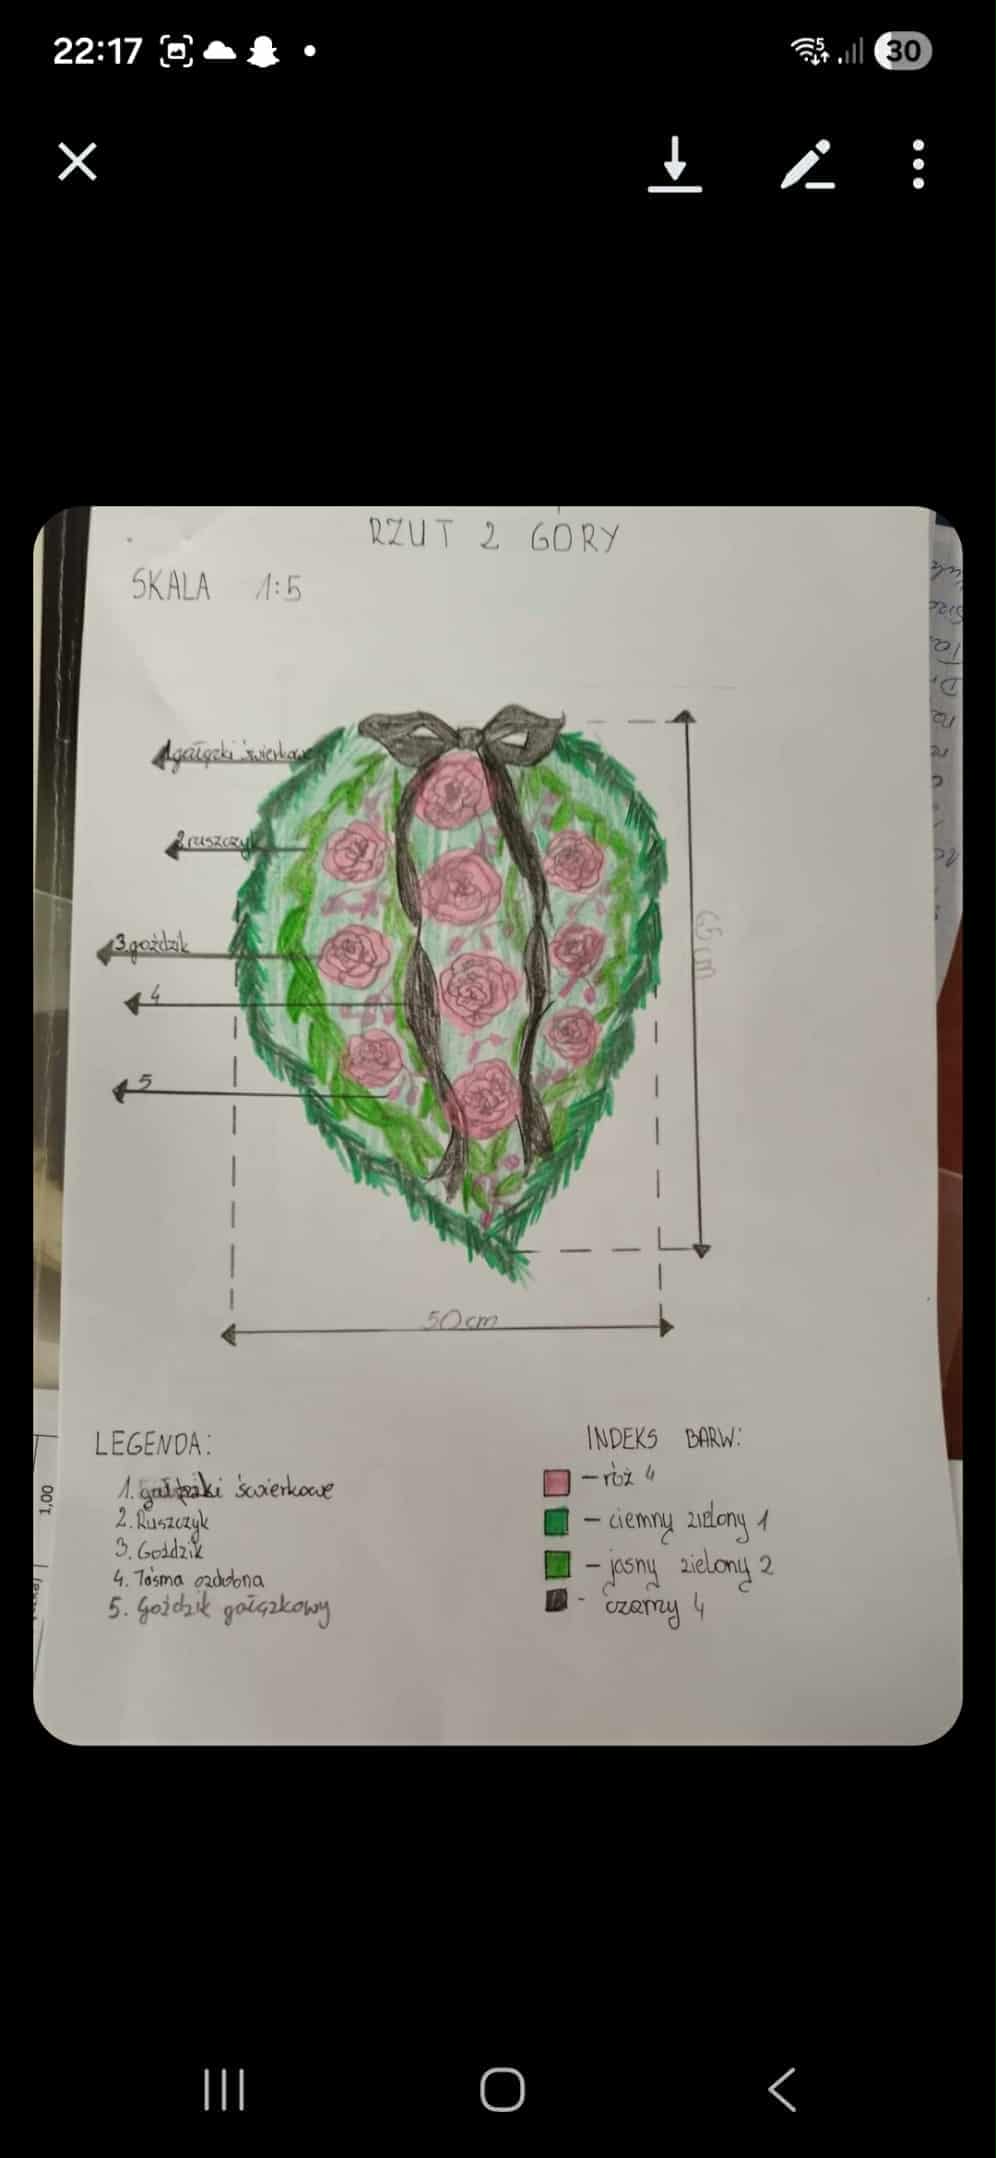 22:17
30
RZUT 2 GÓRY
SKALA 1:5
1 gałązki świerkowe
2 ruszczyk
3 goździk
4
5
65 cm
50 cm
LEGENDA:
1. gałązki świerkowe
2. Ruszczyk
3. Goździk
4. Taśma ozdobna
5. Goździk gałązkowy
INDEKS BARW:
– róż 4
– ciemny zielony 1
– jasny zielony 2
- czarny 4
1,00